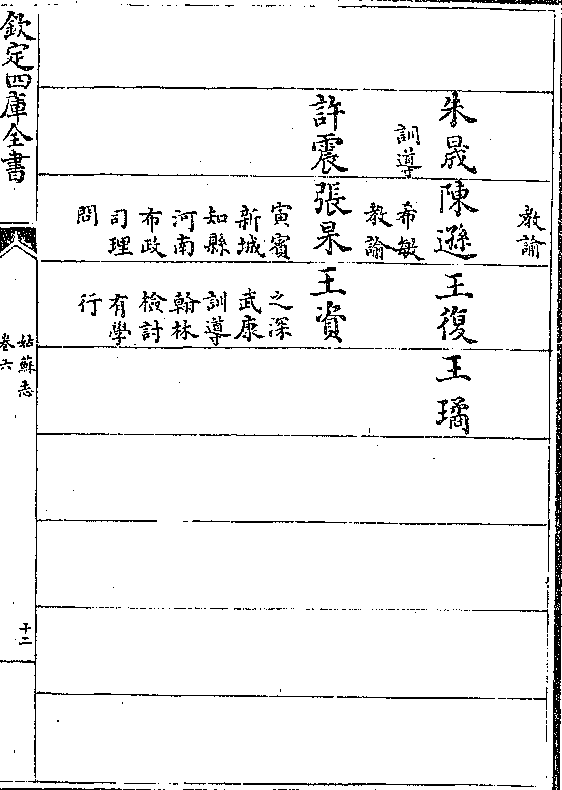 教諭
朱晟 陳遜 王復 王璚
訓導 希敏
教諭
許震 張杲 王資
寅賓 之深
新城 武康
知縣 訓導
河南 翰林
布政 檢討
司理 有學
問 行
欽定四庫全書
姑蘇志
卷六
十二